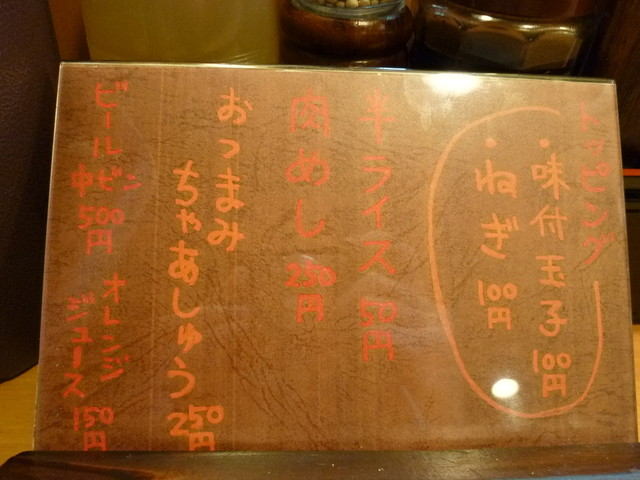 トッピング
・味付玉子 100円
・ねぎ 100円
半ライス 50円
肉めし 250円
おつまみ
ちゃあしゅう 250円
ビール 中ビン 500円
オレンジジュース 150円